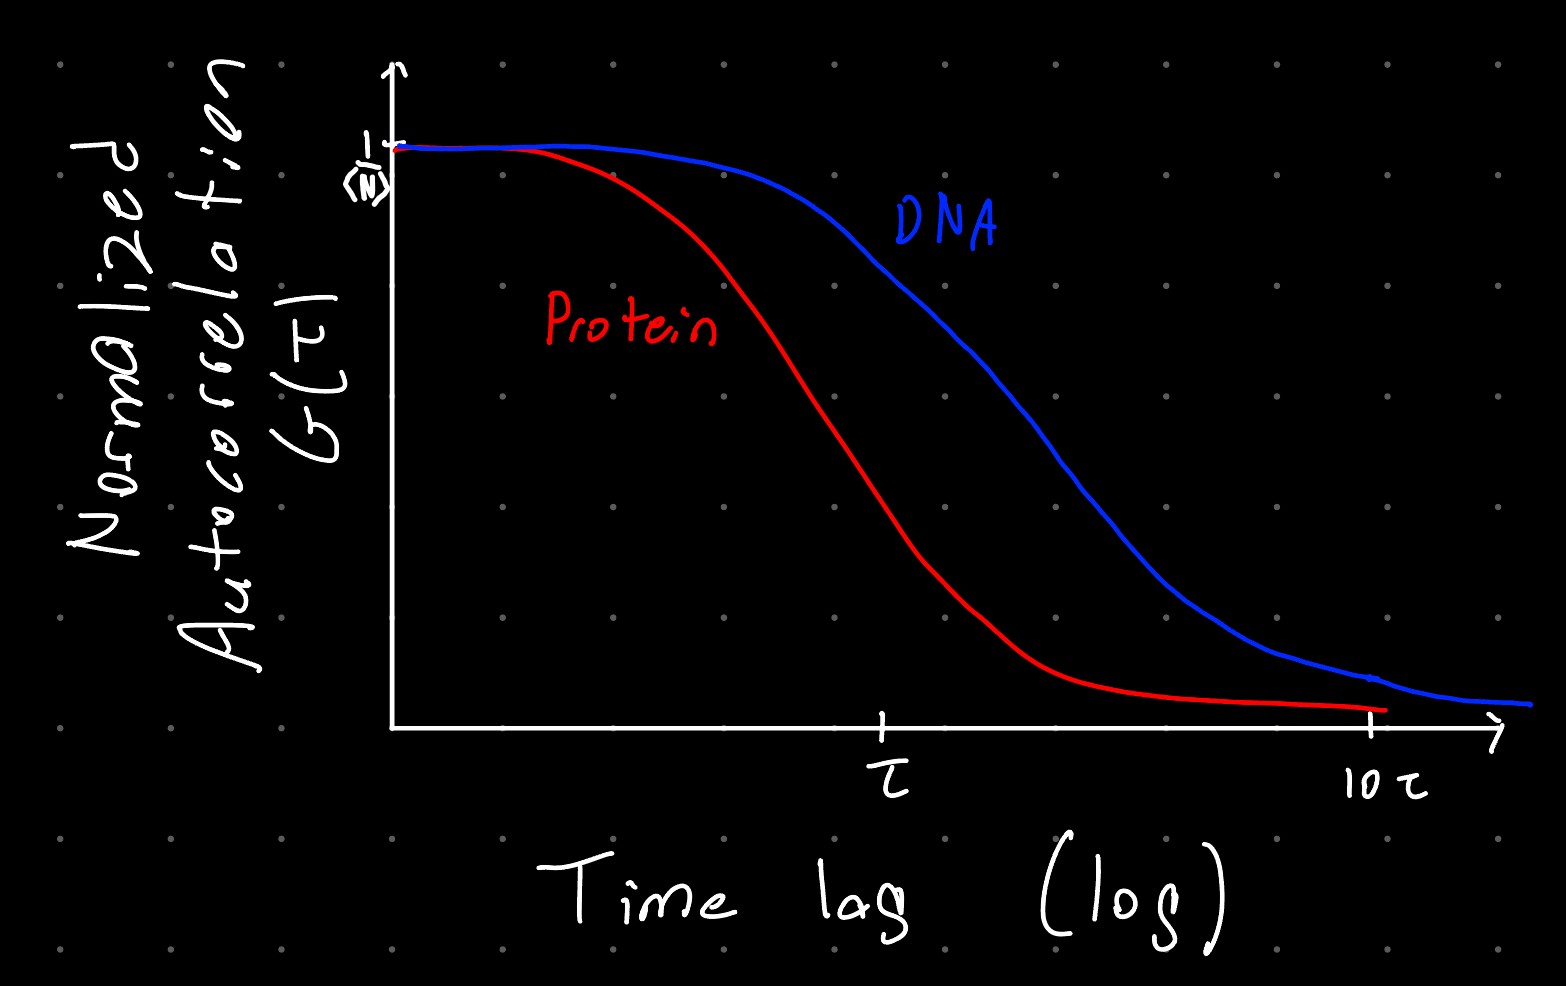 Normalized
Autocorrelation
G(τ)
1
⟨N⟩
DNA
Protein
τ
10 τ
Time lag (log)